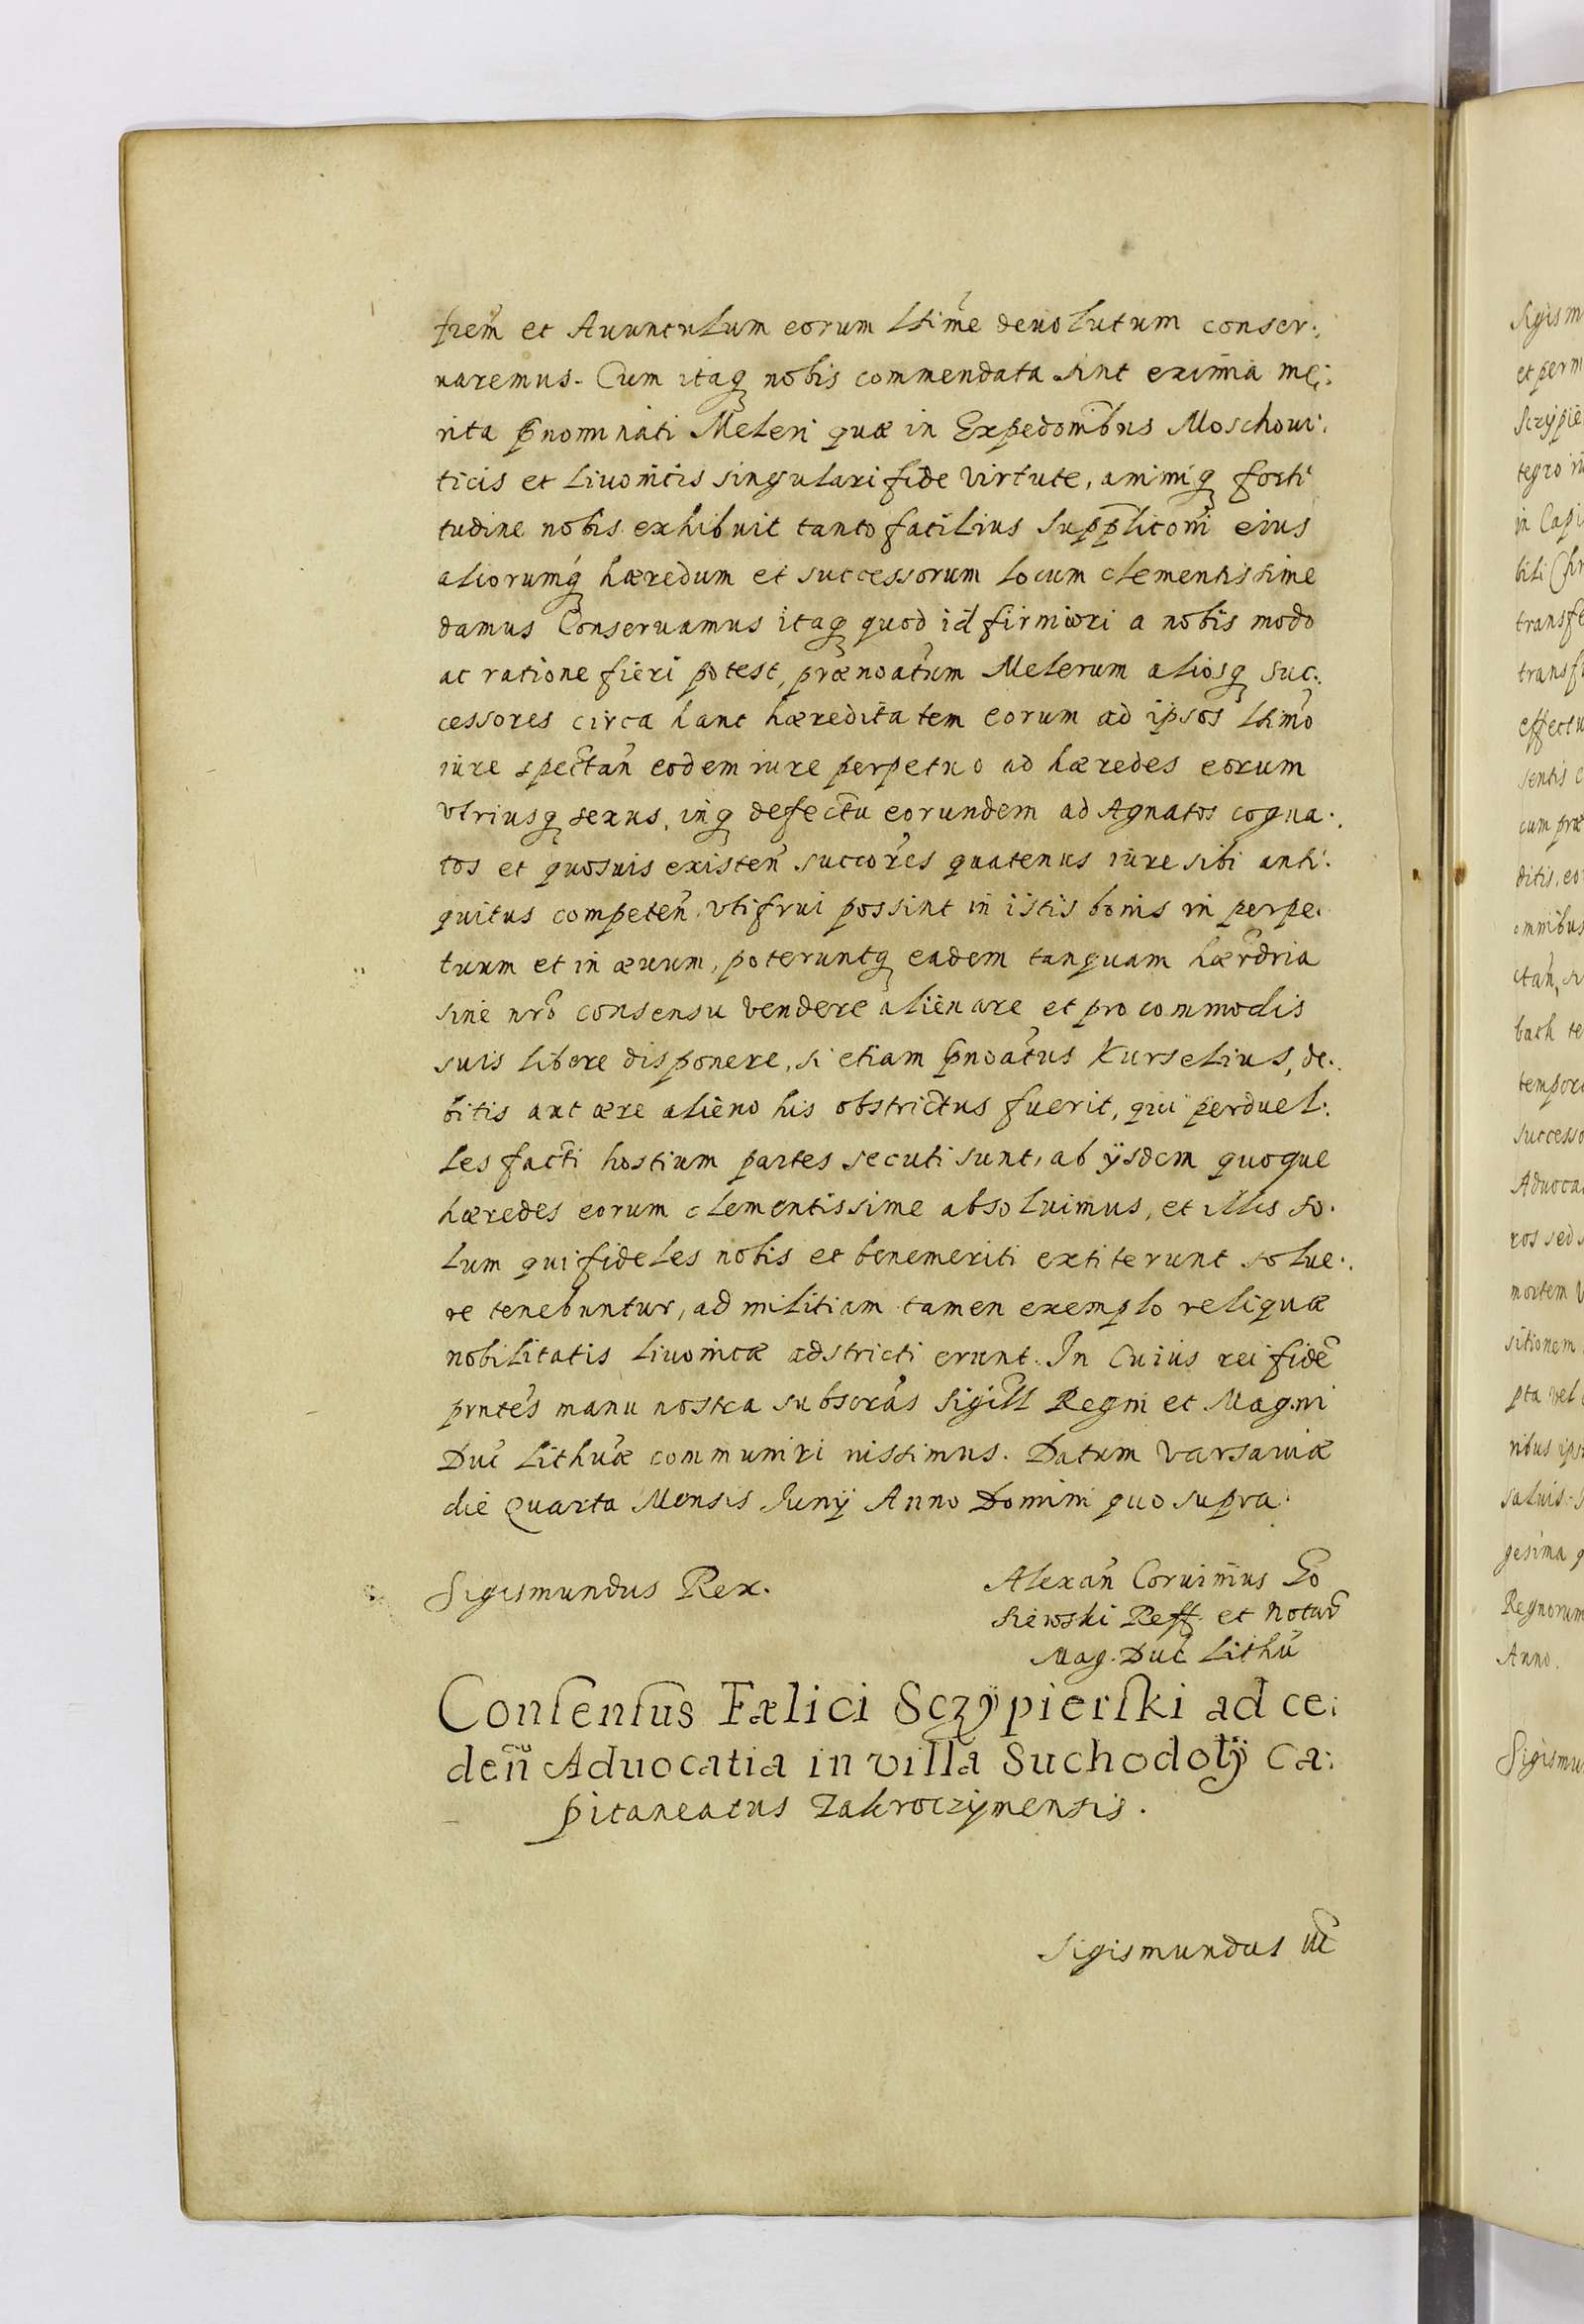 frem̃ et Auunculum eorum Ltime deuolutum conser:
uaremus. Cum itaq nobis commendata sint eximia me:
rita p̃nominati Meleri quæ in Expedom̃bus Moschoui:
ticis et Liuonicis singulari fide virtute, animiq forti
tudine nobis exhibuit tanto facilius supp̃licom̃ eius
aliorumq hæredum et successorum locum clementissime
damus Conseruamus itaq quod id firmiori a nobis modo
ac ratione fieri potest, prænoatum Melerum aliosq suc:
cessores circa hanc hæreditatem eorum ad ipsos Ltimo
iure spectan̄ eodem iure perpetuo ad hæredes eorum
vtriusq sexus, inq defectu eorundem ad Agnatos cogna:
tos et quosuis existen̄ succores quatenus iure sibi anti:
quitus competen̄ vti frui possint in iistis bonis in perpe:
tuum et in æuum, poteruntq eadem tanquam hær̃dria
sine nr̃o consensu vendere alienare et pro commodis
suis libere disponere, si etiam p̃noatus Kurselius, de:
bitis aut ære alieno his obstrictus fuerit, qui perduel:
les facti hostium partes secuti sunt, ab ÿsdem quoque
hæredes eorum clementissime absoluimus, et illis so:
lum qui fideles nobis et benemeriti extiterunt solue:
re tenebuntur, ad militiam tamen exemplo reliquæ
nobilitatis Liuonicæ adstricti erunt. In Cuius rei fidẽ
prntes manu nostra subscras Sigill Regni et Magni
Duc Lithuæ communiri iussimus. Datum Varsauiæ
die Quarta Mensis Junÿ Anno Domini quo supra
Sigismundus Rex.
Alexan̄ Coruinius Go
siewski Reff. et Notar̃
Mag. Duc Lithũ
Consensus Fælici Sczÿpierski ad ce:
den̄ Aduocatia in villa Suchodolÿ Ca:
pitaneatus Zakroczÿmensis.
Sigismundus